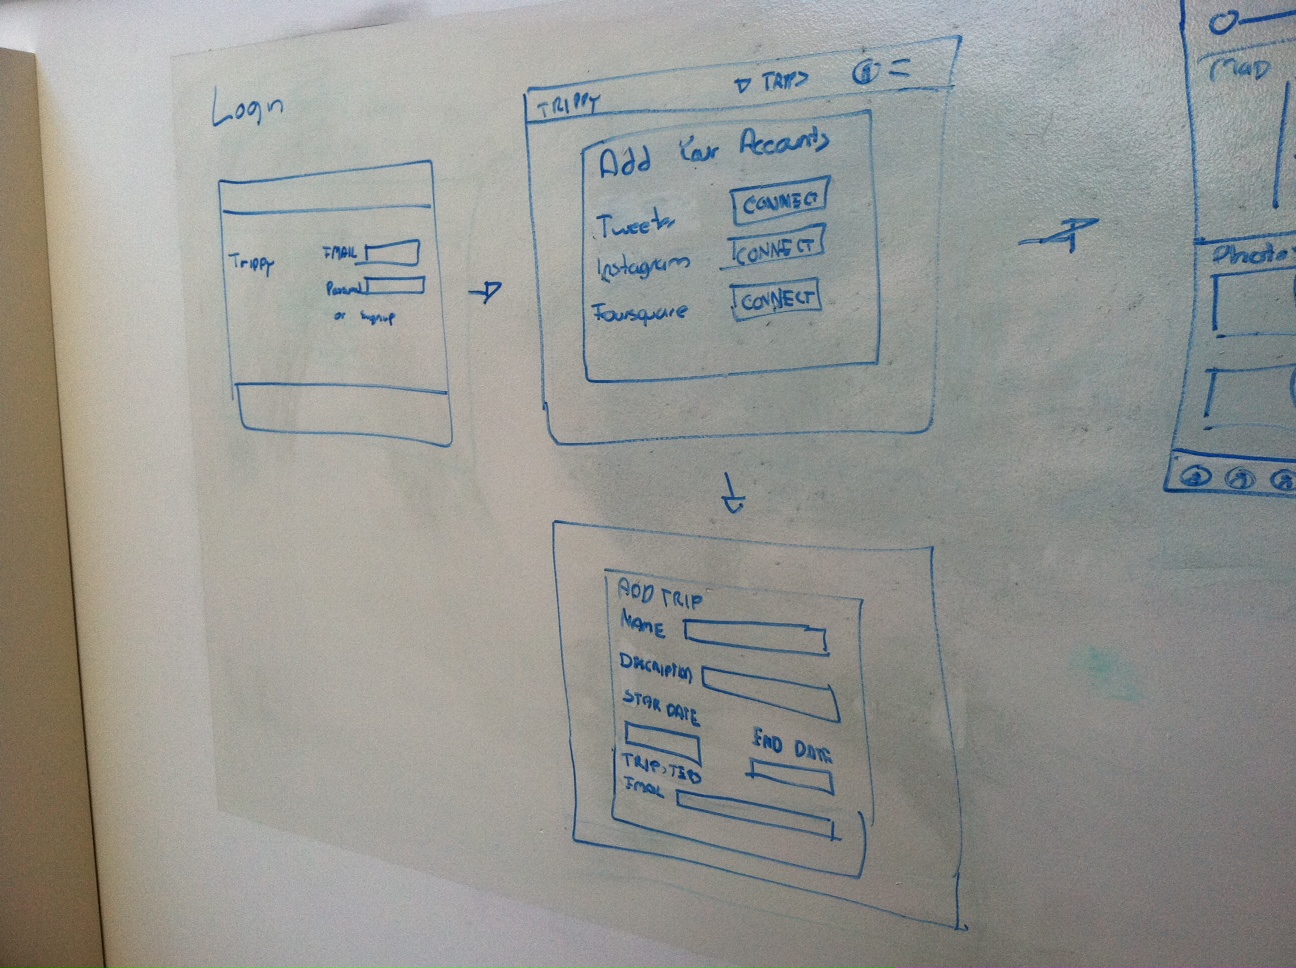 Login
Trippy
EMAIL
or Signup
TRIPPY
TRIPS
Add Your Accounts
CONNECT
Instagram CONNECT
Foursquare CONNECT
ADD TRIP
NAME
DESCRIPTION
STAR DATE
END DATE
EMAIL
MAP
Photo